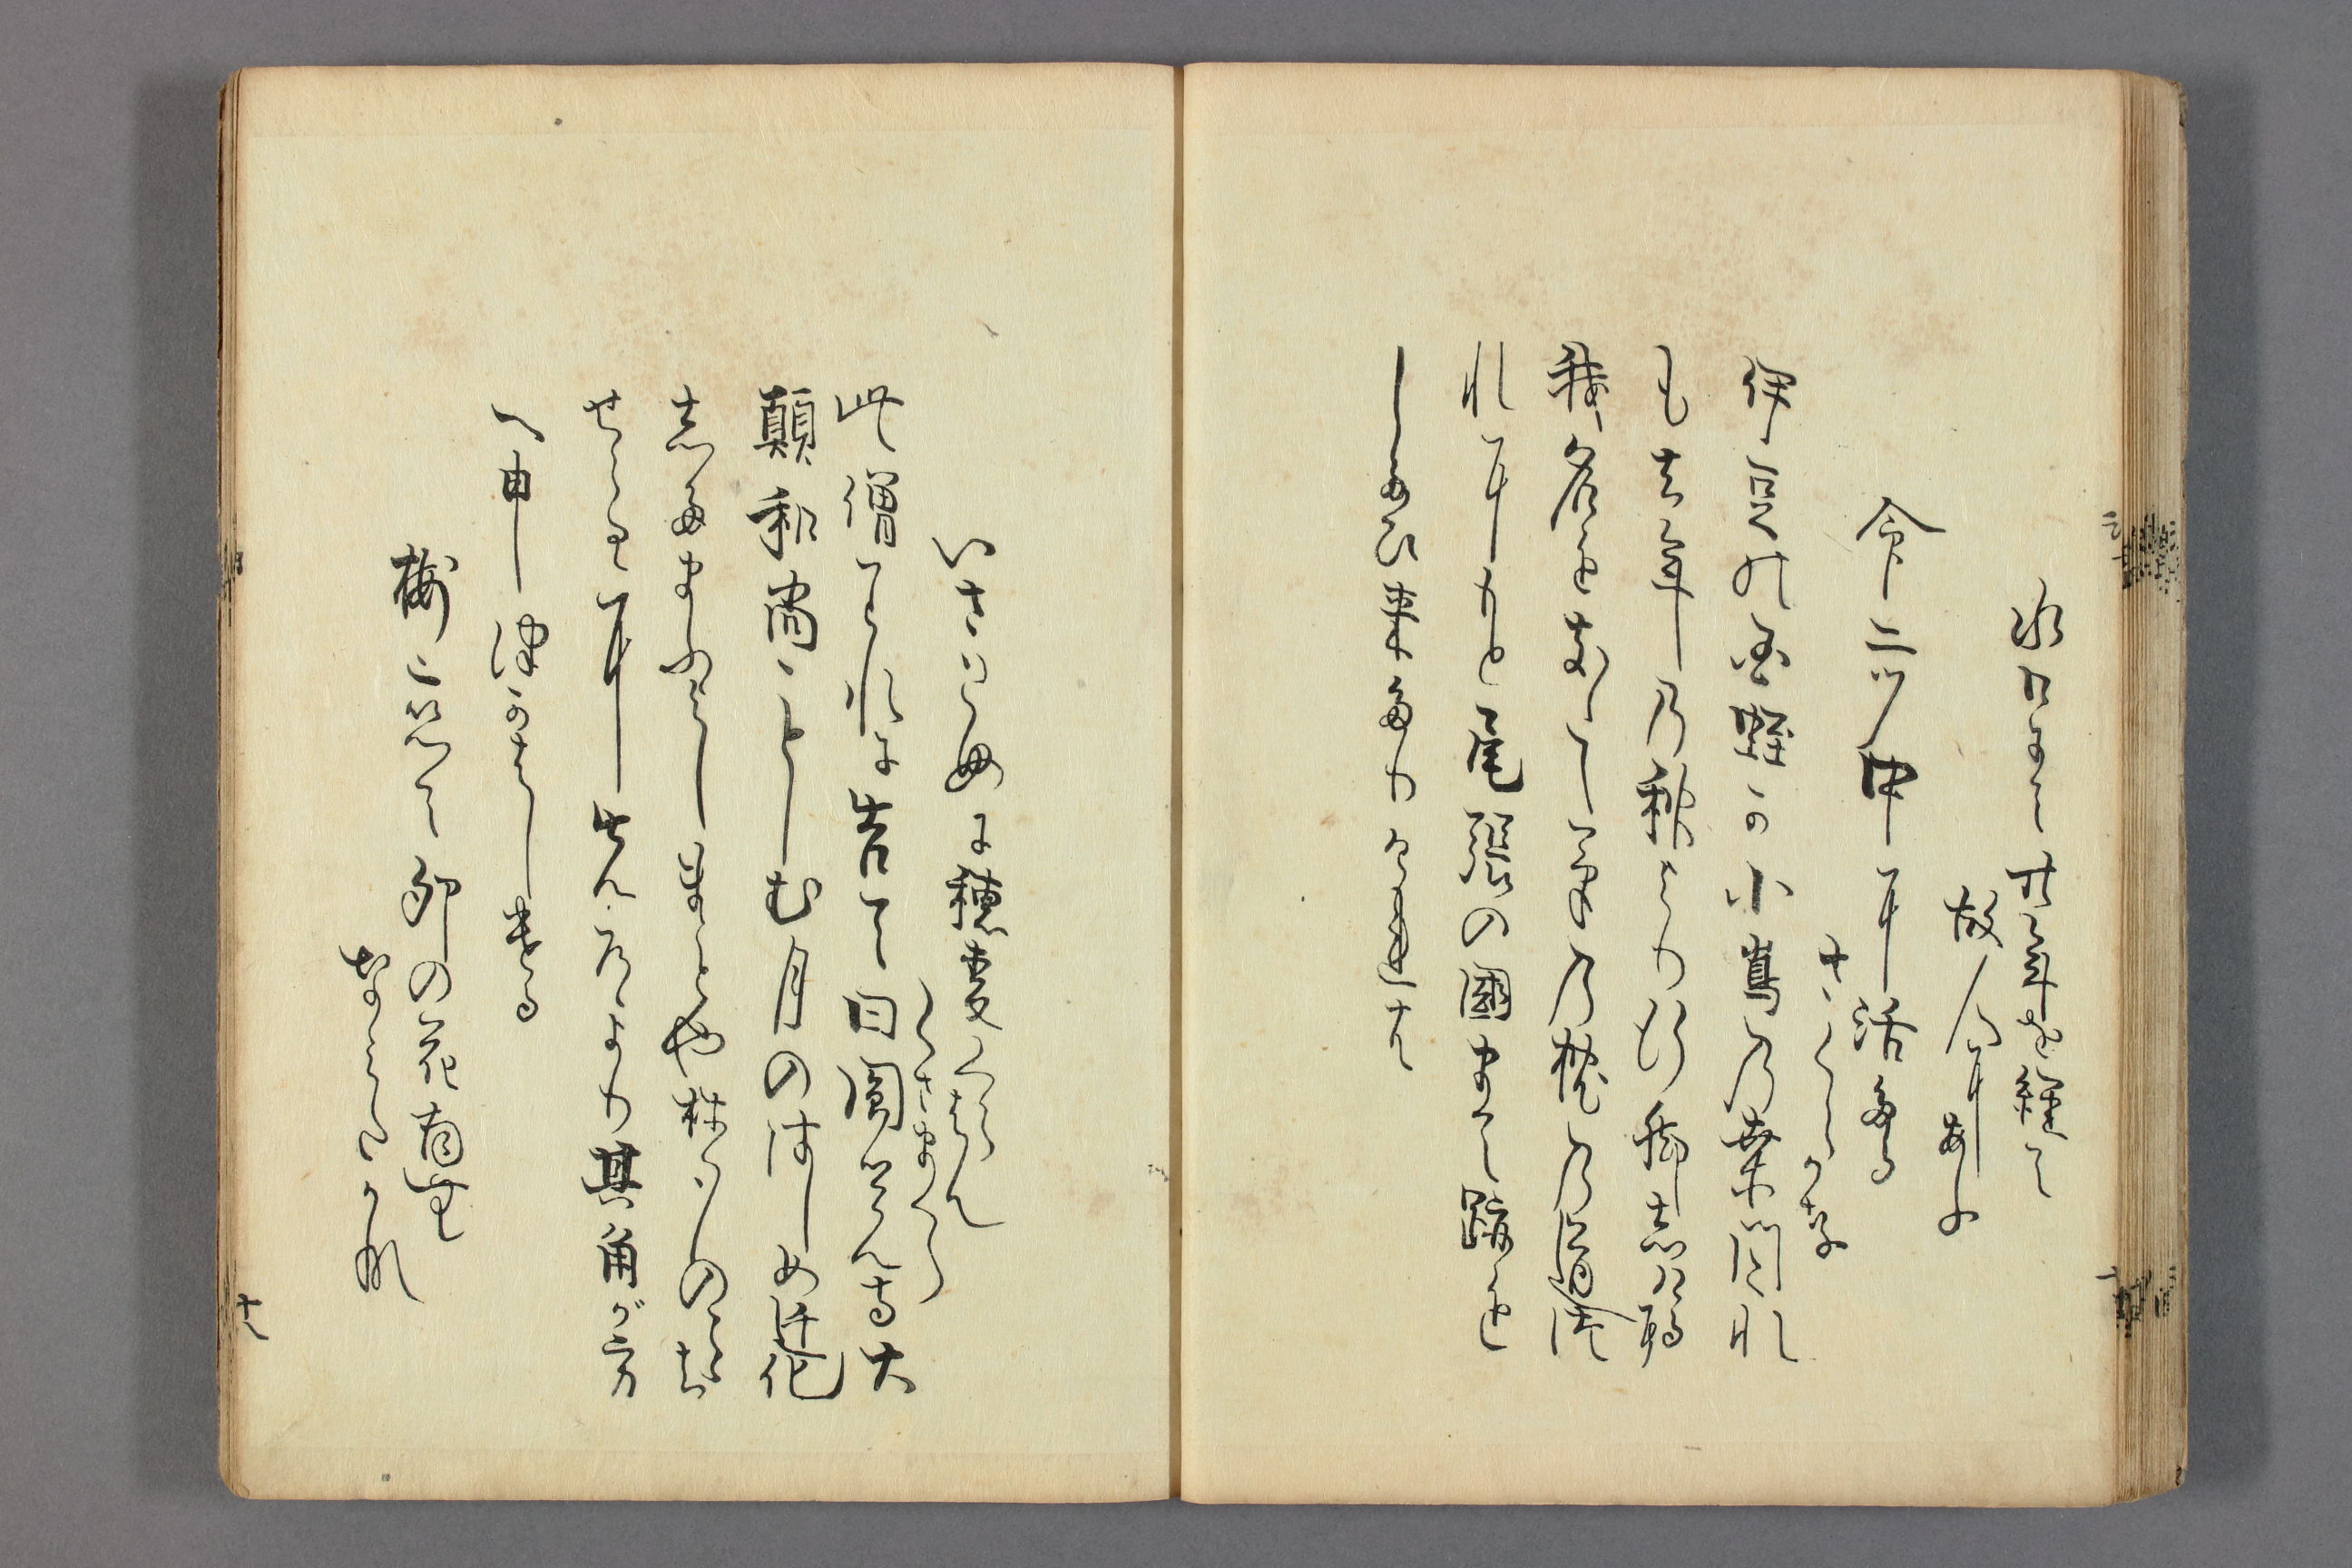 水口にて廿年を経て
故人にあふ
命二ツ中に活たる
さくらかな
伊豆の国蛭か小嶋の桑門これ
も去年の秋より行脚しけるに
我名を聞て草の枕の道つ
れにもと尾張の国まて跡を
したひ来りけれは
いさともに穂麦くらはん
くさまくら
此僧われに告て曰円覚寺大
顛和尚ことしむ月のはしめ迁化
したまふよしまことや夢のこゝち
せらるゝに先道より其角が方
へ申つかはしける
梅こひて卯の花拝む
なみたかな
十八